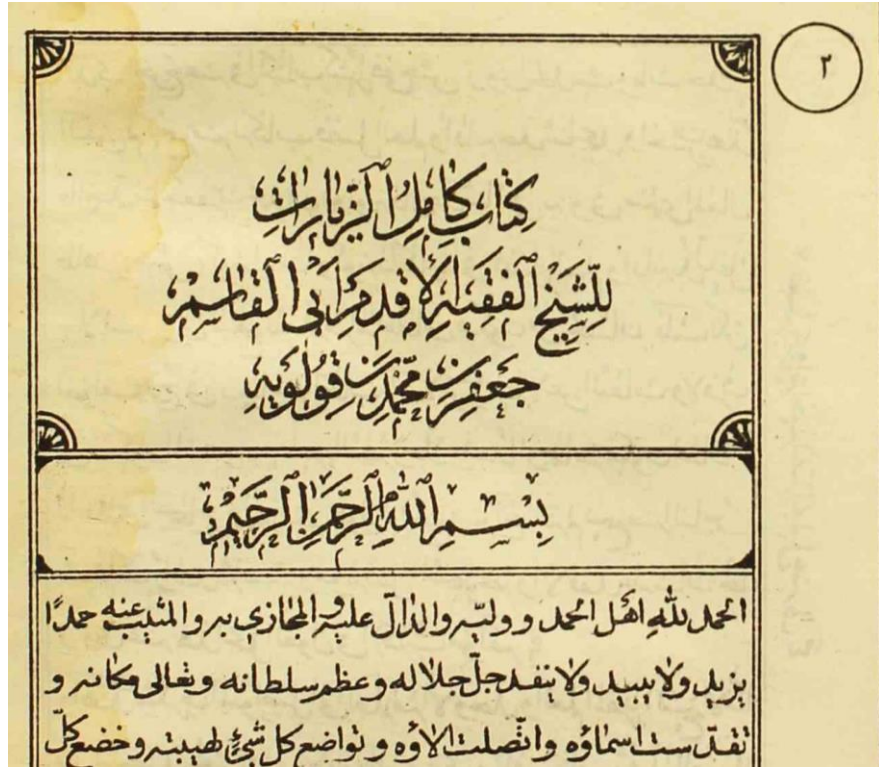 ٢
كتاب كامل الزيارات
للشيخ الفقيه الاقدم ابي القاسم
جعفر بن محمد بن قولويه
بسم الله الرحمن الرحيم
الحمد لله اهل الحمد ووليّه والدالّ عليه والمجازي به والمثيب عنه حمدًا
يزيد ولا يبيد ولا ينفد جلّ جلاله وعظم سلطانه وتعالى مكانه و
تقدّست اسماؤه واتّصلت الاؤه وتواضع كل شئ لهيبته وخضع كلّ